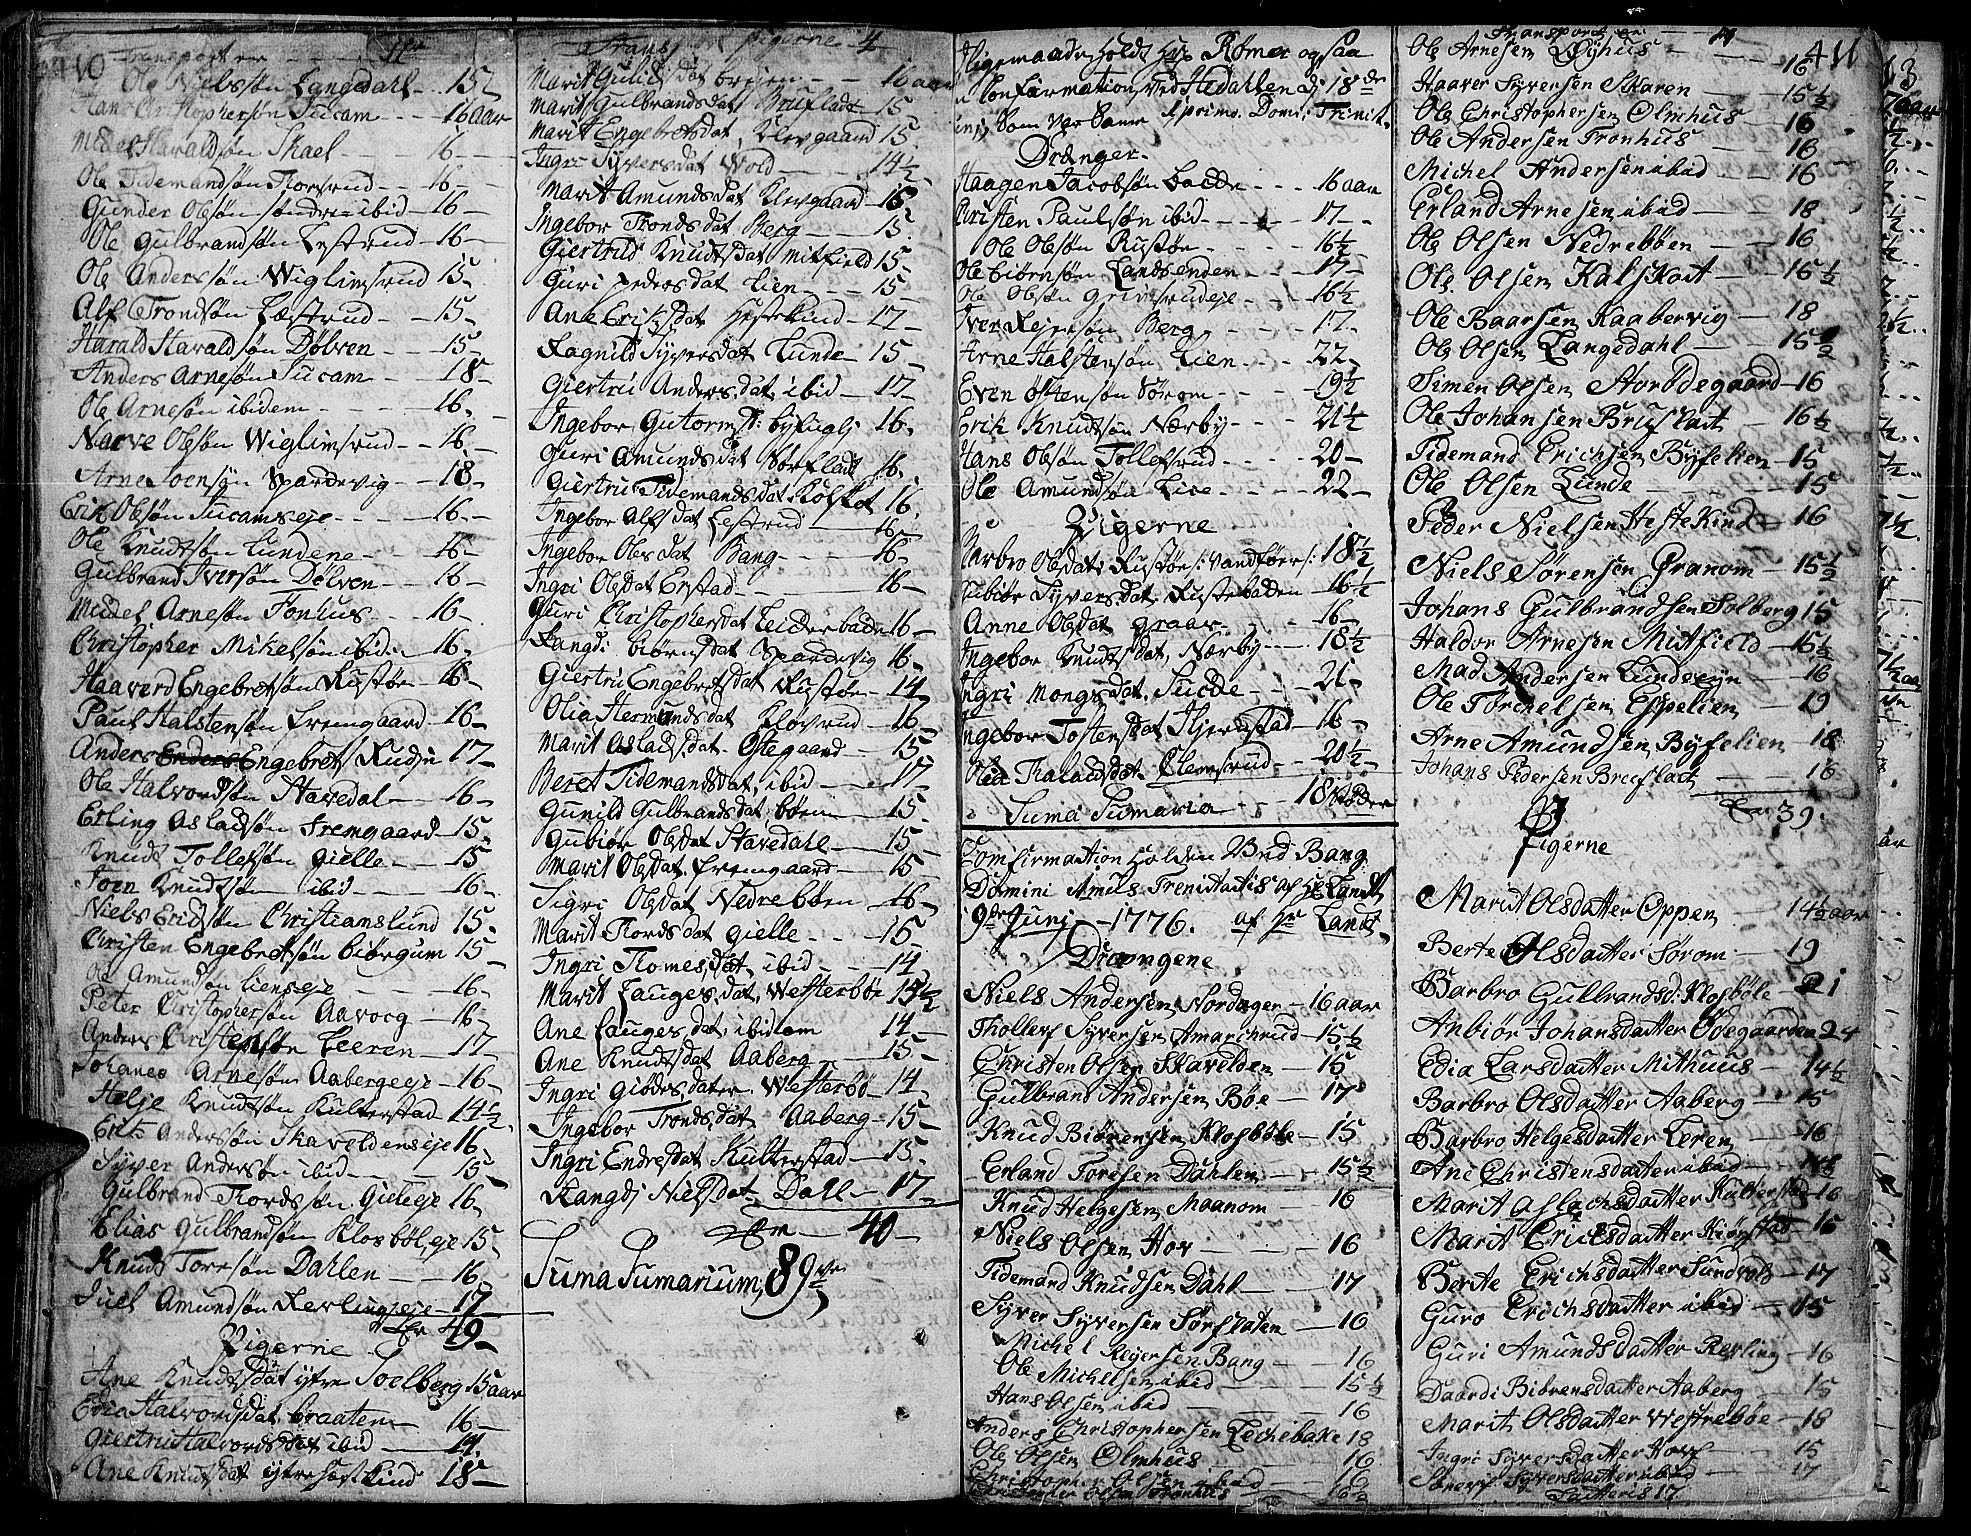 410
Transport er - - - 11
Ole Nielsøn Langedahl - 15
Hans Christophersøn Tucam - - - 16 aar
Haraldsøn Skael - - 16 -
Ole Tidemandsøn Floesrud - - 16 -
Gunder Olsøn søndre ibid - 16 -
Ole Gulbrandsøn Lestrud - 16 -
Ole Andersøn Wiglimsrud 15 -
Alf Trondsøn Læstrud - - 15 -
Harald Haraldsøn Dølven - - 15 -
Anders Arnesøn Tucam - - 18 -
Ole Arnesøn ibidem - - - - 16 -
Narve Olsøn Wiglimsrud - - 16 -
Arne Joensøn Spardevig - - 18 -
Erik Olsøn Tucamseje - - - 16 -
Ole Knudsøn Lundene - - 16 -
Gulbrand Iversøn Dølven - - 16 -
Arnesøn Fonhus - - 16 -
Christopher Mikelsøn ibid - 16 -
Haaverd Engebretsøn Rustøn - 16 -
Paul Halstensøn Fremgaard - 16 -
Anders Engebrets Rudje 17 -
Ole Halvordsøn Stavedal - - 16 -
Erling Aslaksøn Fremgaard - 15 -
Knud Tollefsøn Gielle - - 15
Joen Knudsøn ibid - - - - 16 -
Niels Eridsøn Christianslund 15 -
Christen Engebretsøn Biørgum 15 -
Ol Amundsøn Lienseje - - - 16 -
Peter Christophersøn Aavorg - 16 -
Anders Christensøn Leeren - 17 -
Johanes Arnesøn Aabergeje - 16 -
Helje Knudsøn Kulterstad - 14½
Erik Andersøn Skaveldenseje 16
Syver Andersøn ibid - - - 15 -
Gulbrand Tordsøn Gieleje 16 -
Elias Gulbrandsøn Klosbøleje 15 -
Knud Toresøn Dahlen - - 16 -
Juel Amundsøn Revlingseje - 17 -
Er 49 -
Pigerne -
Ane Knudsdat ytre Soelberg 15 aar
Edia Halvordsdat Braaten - 16 -
Giertru Halvordsdat ibid - - 14 -
Ane Knudsdat ytre Hestekind - 18 -
Transport Pigerne - 4
Marit Gulidsdat Breien - - - 16 aar
Marit Gulbrandsdat Brufladt - 15 -
Marit Engebretsdat Klevgaard 15 -
Ingri Syversdat Wold - - - 14½
Marit Amundsdat Klevgaard 16 -
Ingebor Trondsdat Berg - - 15 -
Giertrud Knudsdat Mitfield 15 -
Guri Pedersdat Lien - - - 15 -
Ane Eriksdat Hestekind - 17 -
Ragnild Syversdat Lunde 15 -
Giertru Andersdat ibid - 17 -
Ingebor Gutormsd: byfuglj 16 -
Guri Amundsdat Sørfladt 16 -
Giertru Tidemandsdat Kolskot 16 -
Ingebor Alfsdat Lestrud - - 16 -
Ingebor Olesdat Bang - - - 16 -
Ingri Olsdat Erstad - - - - 16 -
Guri Christophersdat Leiderbade 16 -
Rangdi Biørnsdat Spardevig 16 -
Giertru Engebretsdat Rustøn - 14
Olia Hermundsdat Kløvrud - 16 -
Marit Aslaksdat Ødegaard - 15 -
Beret Tidemandsdat ibid - - 17 -
Gunild Gulbrandsdat Børn - 15 -
Gubiør Olsdat Stavedahl - 15 -
Marit Olsdat Fremgaard - - 15 -
Sigri Olsdat Nedrebøen - 16 -
Marit Tordsdat Gielle - - - 15 -
Ingri Tomesdat ibid - - - 14 -
Marit Laugesdat Westerbøe 15½
Ane Laugesdat ibidem 14 -
Ane Knudsdat Aaberg - - 15 -
Ingri Giødesdater Westerbø - 14 -
Ingebor Trondsdat Aaberg - 15 -
Ingri Endresdat Kulterstad - 15 -
Rangdj Nielsdat Dahl - 17 -
Er - 40 -
Suma Sumarium 89
Ligemaade Holdt Hr Rømer ogsaa
Confirmation ved Hedahlen dj 18de
Junj, Som var Samme d primo. Domi: Trinit.
Drænger -
Haagen Jacobsøn Badde - - - 16 aar
Christen Paulsøn ibid - - - - 17 -
Ole Olsøn Rustøn - - - - - 16½
Ole Biørnsøn Landsenden - - 17 -
Ole Olsøn Grimsrudeje - - - 16½
Iver Rejersøn Berg - - - - 17 -
Arne Halstensøn Lien - - - 22 -
Even Ostensøn Sørom - - - 19½
Erik Knudsøn Nærby - - - 21½
Hans Olsøn Tollefsrud - - - 20 -
Ole Amundsøn Lie - - - - 22 -
Pigerne
Barbro Olsdat Rustøn /: Vandføre :/ 18½
Gubiør Syversdat Rustebaden 16½
Anne Olsdat Graar - - - - 16 -
Ingebor Knudsdat Nærby - - - 18½
Ingri Mongsdat Sudde - - - 21 -
Ingebor Tostensdat Hjerdstad - 16 -
Olia Haraldsdat Clemsrud - 20½
Suma Sumaria - - - 18 Støcker
Comfirmation Holden Ved Bang
Domini Amiis Trenitatis af Hr Landt
9de Junj - 1776. af Hr Landt,
Drængene
Niels Andersen Nordager - 16 aar
Thollef Syversen Amarichrud - 15½
Christen Olsen Skavelden - 15
Gulbrand Andersen Bøe - 17
Knud Biørensen Klosbøle - 15
Erland Toresen Dahlen - 15½
Knud Helgesen Maanom - - 16
Niels Olsen Hov - - - - 16
Tidemand Knudsen Dahl - - 17
Syver Syversen Sørfladen - 16
Michel Reyersen Bang - - 16
Ole Michelsen ibid - - - 15½
Hans Olsen ibid - - - - 16
Anders Christophersen Lechebake 18
Ole Olsen Olmhus - - - - 16
Christopher Olsen ibid - - 16
Christopher Olsen Tronhus - 16½
411
Transport er - - 17
Ole Arnesen Lojhus - - 16
Haaver Syversen Skaren - - 15½
Ole Christophersen Olmhus - 16
Ole Andersen Tronhus - - 16
Michel Andersen ibid - - 16
Erland Arnesen ibid - - 18
Ole Olsen Nedrebøen - - 16
Ole Olsen Kalskot - - 16½
Ole Baarsen Kaabervig - 18
Ole Olsen Langedahl - - 15½
Simen Olsen Stor Ødegaard - 16
Ole Johansen Bruflat - - 16½
Tidemand Erichsen Byfelien - 15
Ole Olsen Lunde - - - 15
Peder Nielsen Hestekind - - 16
Niels Sørensen Granom - - 15½
Johans Gulbrandsen Solberg 15
Haldor Arnesen Mitfield - 15½
Mad Andersen Lundseyn - 16
Ole Torchelsen Espelien - 19
Arne Amundsen Byfelien - 18
Johans Pedersen Bruflat - - 16
Er 39.
Pigerne
Marit Olsdatter Oppen - 14½ aar
Berte Olsdatter Sørom - - 19
Barbro Gulbrandsd: Klosbøle - 21
Anbiør Johansdatter Ødegaarden 24
Edia Larsdatter Mithuus - - 14½
Barbro Olsdatter Aaberg - - 15
Barbro Helgesdatter Leren - - 16
Ane Christensdatter ibid - - 14½
Marit Aslachsdatter Kulterstad - 16
Marit Erichsdatter Kiørstad - 16
Berte Erichsdatter Sundvold - 17
Guro Erichsdatter ibid - - 15
Guri Amundsdatter Revling - 16
Daardi Biørensdatter Aaberg - 15
Marit Olsdatter Westrebøe - - 18
Ingri Syversdatter Hov - - 15
Syversdatter ibid - - 17
Latteris 17